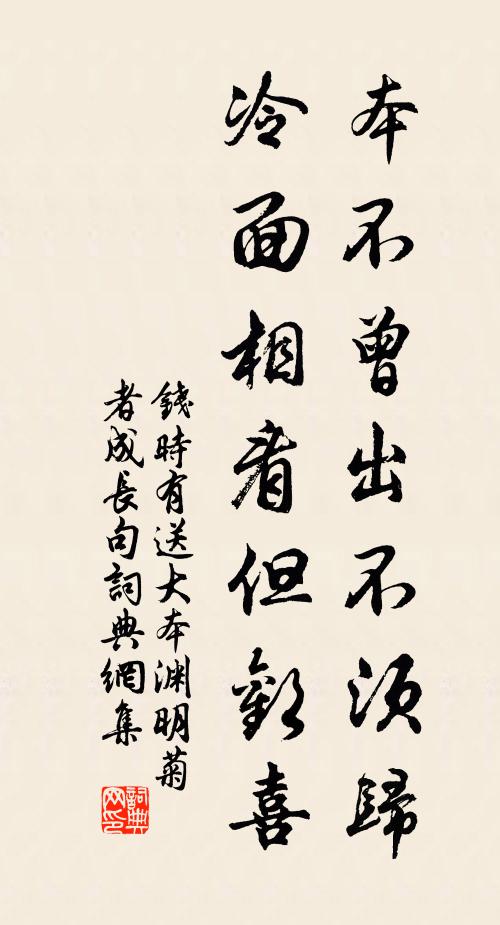 本不曾出不须歸
冷面相看但歡喜
錢時有送大本淵明菊
者成長句詞典網集
詞典
网印